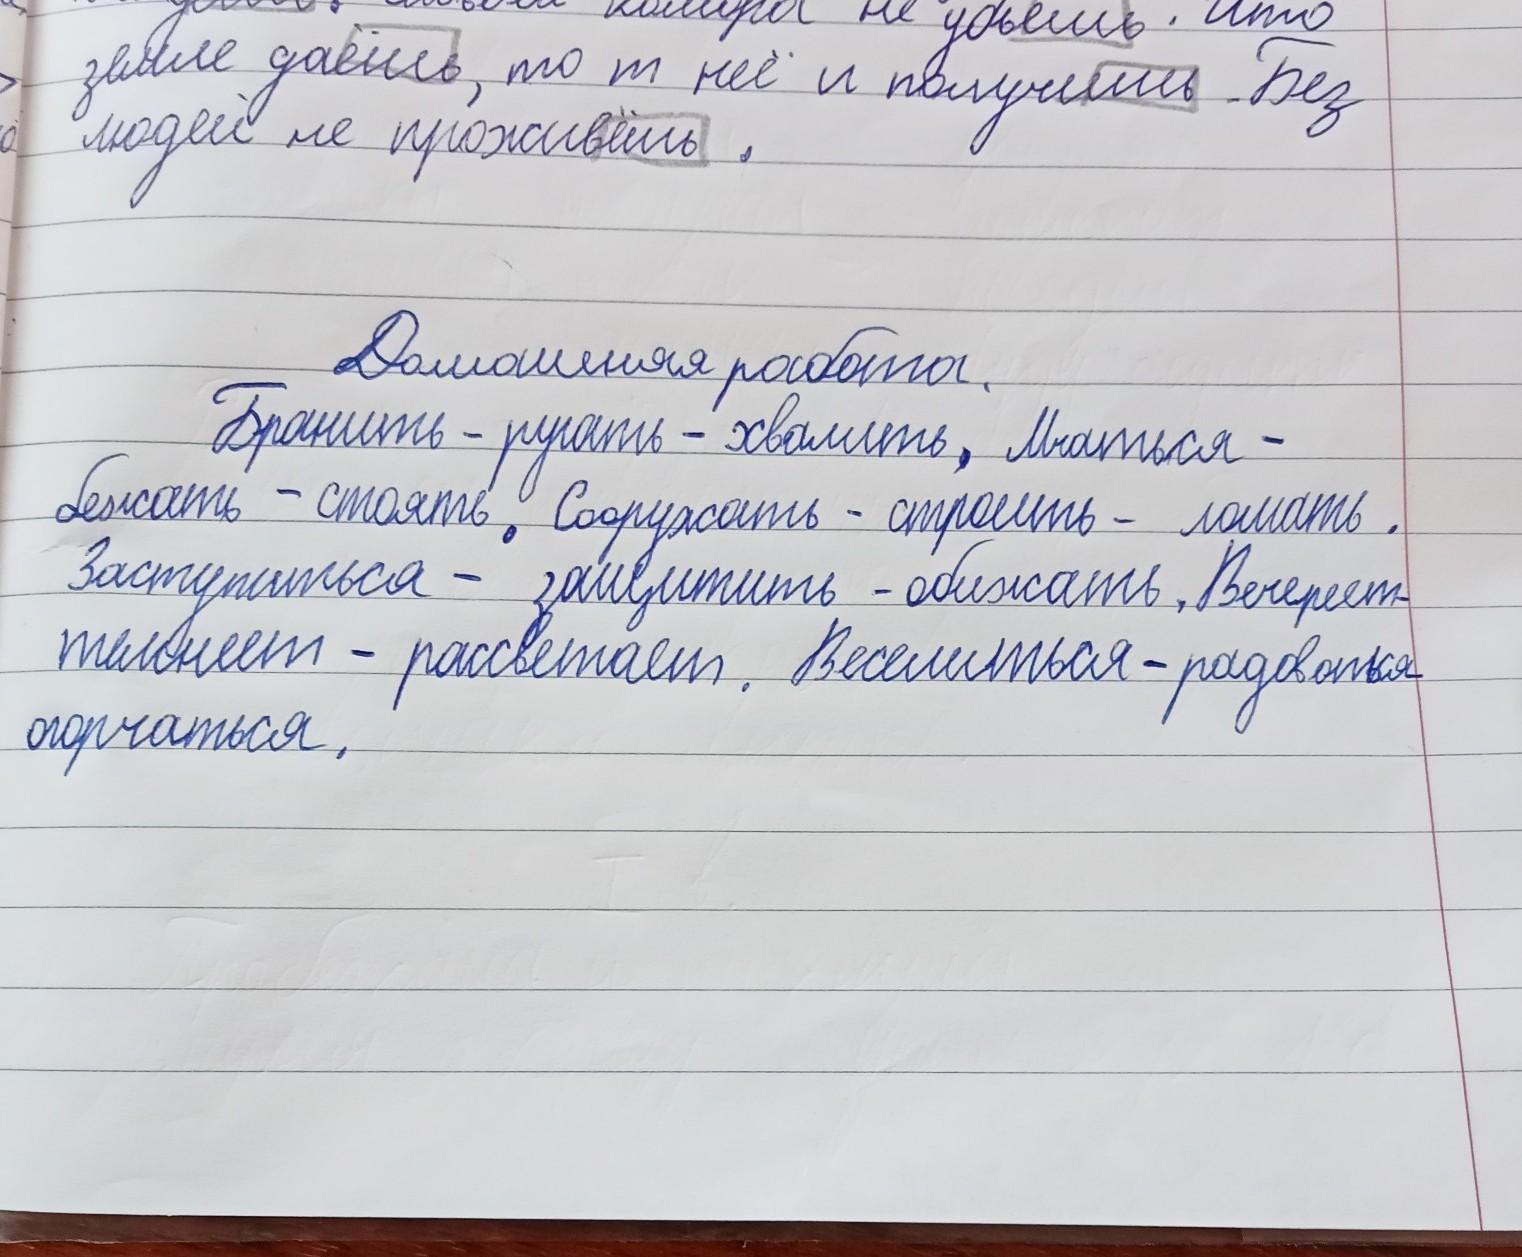 комара не убьёшь. Что
земле даёшь, то т неё и получишь. Без
людей не проживёшь.
Домашняя работа.
Бранить - ругать - хвалить. Мчаться -
бежать - стоять. Сооружать - строить - ломать.
Заступиться - защитить - обижать. Вечереет-
темнеет - рассветает. Веселиться - радоваться
огорчаться.